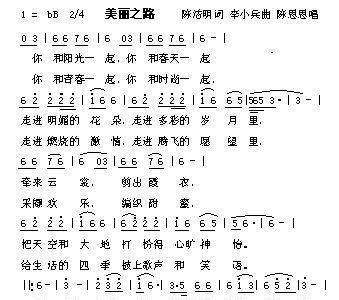 1 = bB 2/4 美丽之路 陈涛明词 李小兵曲 陈思思唱
0 3 | 6 6 7 6 | 6 0 3 | 6 6 7 6 | 6 - |
你 和阳光一 起, 你 和春天一 起
你 和青春一 起, 你 和时尚一 起,
6 2 2 2 2 | 1 6 | 6 2 2 2 2 | 1 6 6 5 | 565 3 · | 3 - |
走进 明媚的 花 朵, 走进 多彩的 岁 月 里,
走进 燃烧的 激 情, 走进 腾飞的 愿 望 里,
6 6 7 6 | 6 0 3 | 6 6 7 6 | 6 - |
牵来 云 裳, 剪出 霞 衣,
采撷 欢 乐, 编织 甜 蜜,
6 2 2 2 | 1 6 2 | 1 6 6 5 | 5 6 · | 6 - |
把天 空和 大 地 打 扮得 心旷 神 怡。
给生 活的 四 季 披上歌声 和 笑 语。